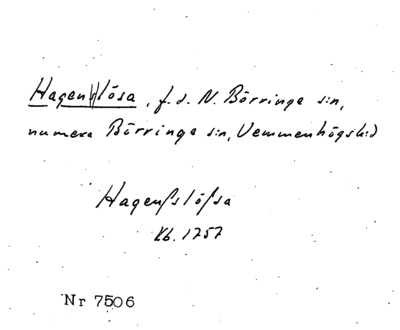 Hagen||lösa, f. d. N. Börringe sn,
numera Börringe sn, Vemmenhögs hd
Hagenßlößa
Kb. 1757
Nr 7506